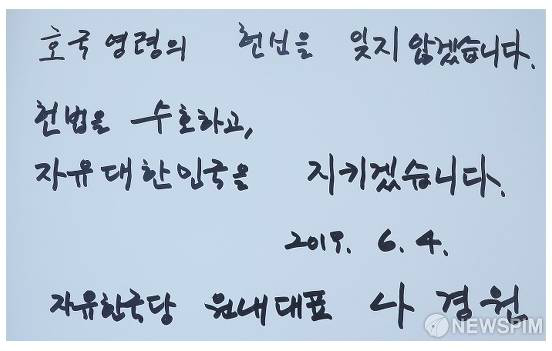 호국영령의 헌신을 잊지 않겠습니다.
헌법을 수호하고,
자유대한민국을 지키겠습니다.
2019. 6. 4.
자유한국당 원내대표 나경원
NEWSPIM